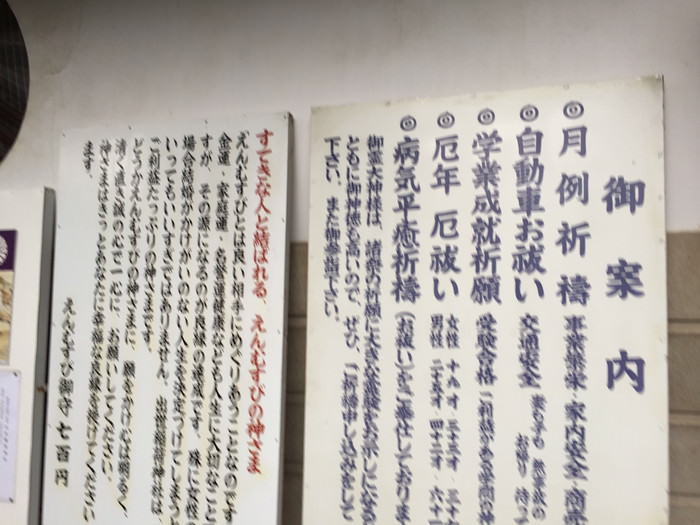 御案内
◎月例祈禱 事業繁栄・家内安全・商
◎自動車お祓い 交通安全
◎学業成就祈願 受験合格
◎厄年 厄祓い 女性 十九才 三十三才
男性 二十五才 四十二才 六十一
◎病気平癒祈禱 (お祓い)をご奉仕しておりま
御霊大神様は、諸衆の祈願に大きな霊験をお示しになる
ともに御神徳も高いので、ぜひ、ご祈禱申し込みをして
下さい。また御参詣下さい。
すてきな人と結ばれる、えんむすびの神さま
「えんむすび」とは良い相手にめぐりあうことなのです
金運・家庭運・名誉運健康なども人生に大切なこと
すが、その源になるのが良縁の達成です。殊に女性の
場合結婚がかけがいのない人生を決定づけてしまうと
いってもいいすぎではありません。出世稲荷神社は、
ご利益たっぷりの神さまです。
どうかえんむすびの神さまに、願をかけ心は明るく、
清く直く誠の心で一心に、お願いしてください。
神さまはきっとあなたに幸福な良縁を授けてください
ます。
えんむすび御守 七百円